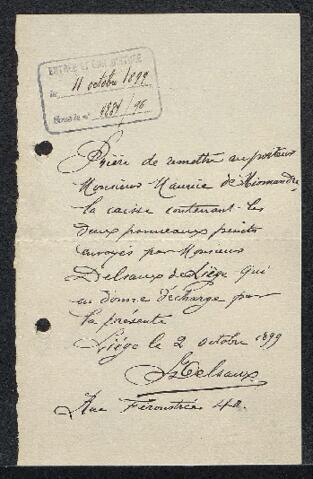 le 11 octobre 1899
Prière de remettre au porteur
Monsieur Maurice de Miomandre
la caisse contenant les
deux panneaux peints
envoyés par Monsieur
Delsaux de Liège qui
en donne décharge par
la présente
Liège le 2 octobre 1899
Delsaux
Rue Féronstrée 42